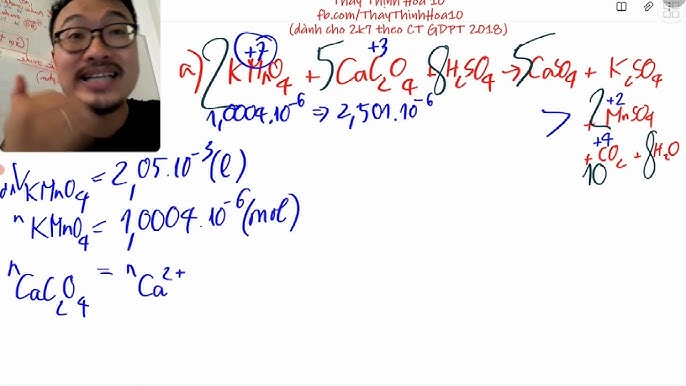 Thầy Thịnh Hóa 10
fb.com/ThayThinhHoa10
(dành cho 2k7 theo CT GDPT 2018)
+7 +3
a) 2KMnO4 + 5CaC2O4 + 8H2SO4 → 5CaSO4 + K2SO4
1,0004.10^-6 ⇒ 2,501.10^-6
+2
+ 2MnSO4
+4
+ 10CO2 + 8H2O
V KMnO4 = 2,05.10^-3 (l)
n KMnO4 = 1,0004.10^-6 (mol)
n CaC2O4 = n Ca2+